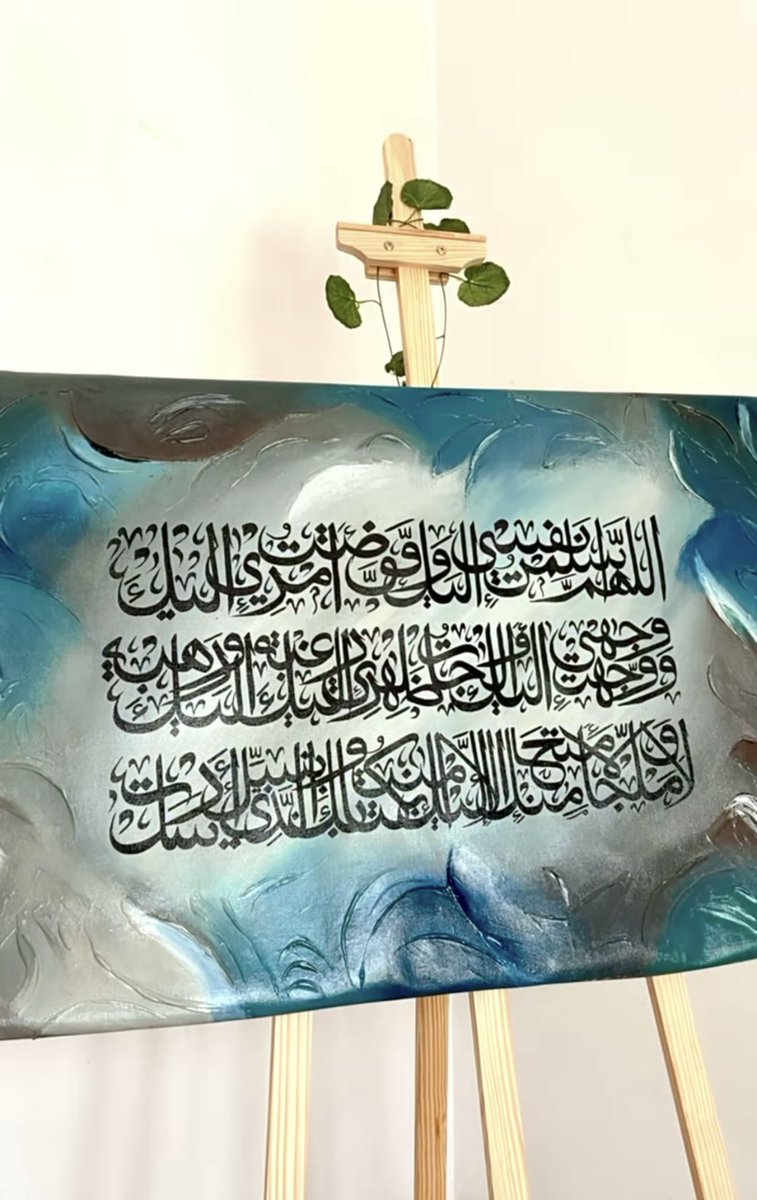 اللهم أسلمت نفسي إليك وفوضت أمري إليك
ووجهت وجهي إليك وألجأت ظهري إليك رغبة ورهبة إليك
لا ملجأ ولا منجا منك إلا إليك الذي أرسلت